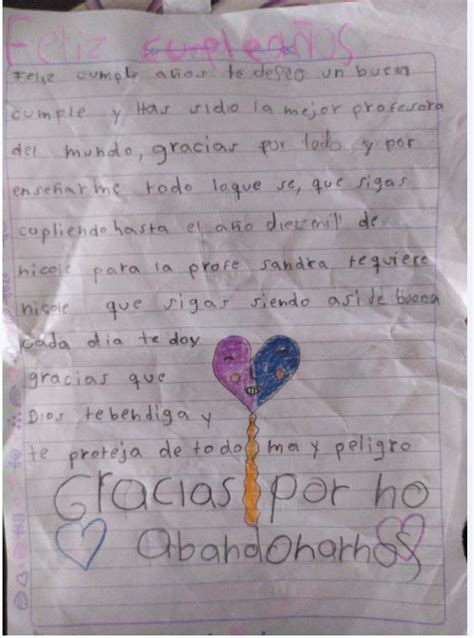 Feliz cumpleaños
Feliz cumple años te deseo un buen
cumple y Has sido la mejor profesora
del mundo, gracias por todo y por
enseñarme todo loque se, que sigas
cupliendo hasta el año diezmil de
nicole para la profe sandra tequiere
nicole que sigas siendo asi de buena
cada dia te doy
gracias que
Dios tebendiga y
te proteja de todo ma y peligro
Gracias por no
Abandonarnos